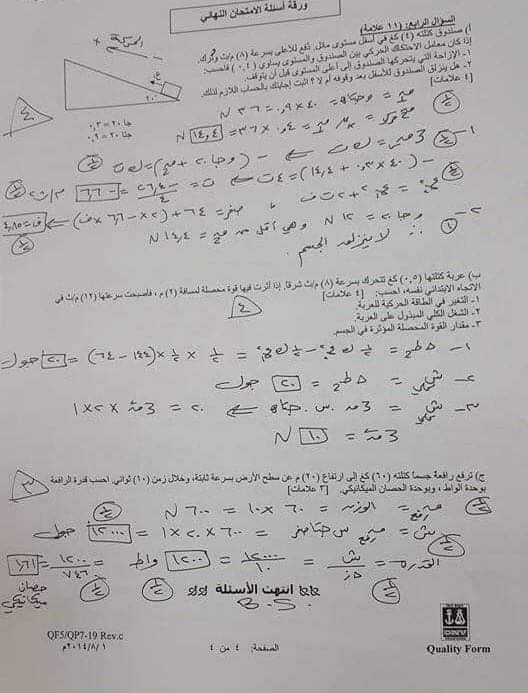 ورقة أسئلة الامتحان النهائي
السؤال الرابع: (١١ علامة)
أ) صندوق كتلته (٤) كغ في أسفل مستوى مائل، دفع للأعلى بسرعة (٨) م/ث وترك.
إذا كان معامل الاحتكاك الحركي بين الصندوق والمستوى يساوي (٠,٤) فاحسب:
١- الإزاحة التي يتحركها الصندوق إلى أعلى المستوى قبل أن يتوقف.
٢- هل ينزلق الصندوق للأسفل بعد وقوفه أم لا؟ أثبت إجابتك بالحساب اللازم لذلك.
[٤ علامات]
الحركة
٢٠°
جا ٢٠ = ٠,٣
جتا ٢٠ = ٠,٩
٤
= ٤٠ × ٠,٩ = ٣٦ N
= ٠,٤ × ٣٦ = ١٤,٤ N
١-
-(٤٠ × ٠,٣ + ١٤,٤) = ٤ت
صفر = ٦٤ + (٢ × -٦,٦ × ف) ف = ٤,٨٥
٢- وجا٢٠ = ١٢ N وهي أقل من ١٤,٤ N
∴ لا ينزلق الجسم.
ب) عربة كتلتها (٠,٥) كغ تتحرك بسرعة (٨) م/ث شرقا. إذا أثرت فيها قوة محصلة لمسافة (٢) م ، فأصبحت سرعتها (١٢) م/ث في
الاتجاه الابتدائي نفسه، احسب: [٤ علامات]
١- التغير في الطاقة الحركية للعربة.
٢- الشغل الكلي المبذول على العربة.
٣- مقدار القوة المحصلة المؤثرة في الجسم.
٤
= ½ × ½ × (١٤٤ - ٦٤) = ٢٠ جول
= ٢٠ جول
٢٠ = × ٢ × ١
= ١٠ N
ج) ترفع رافعة جسماً كتلته (٦٠) كغ إلى ارتفاع (٢٠) م عن سطح الأرض بسرعة ثابتة، وخلال زمن (١٠) ثواني. احسب قدرة الرافعة
بوحدة الواط ، وبوحدة الحصان الميكانيكي. [٣ علامات]
٣
= الوزن = ٦٠ × ١٠ = ٦٠٠ N
= ٦٠٠ × ٢٠ × ١ = ١٢٠٠٠ جول
القدرة = = ١٢٠٠٠ / ١٠ = ١٢٠٠ واط = ١٢٠٠ / ٧٤٦ = ١,٦١
حصان ميكانيكي
انتهت الأسئلة
B.S.
QF5/QP7-19 Rev.c
٢٠١٤/٨/١م
الصفحة: ٤ من ٤
DNV
Quality Form